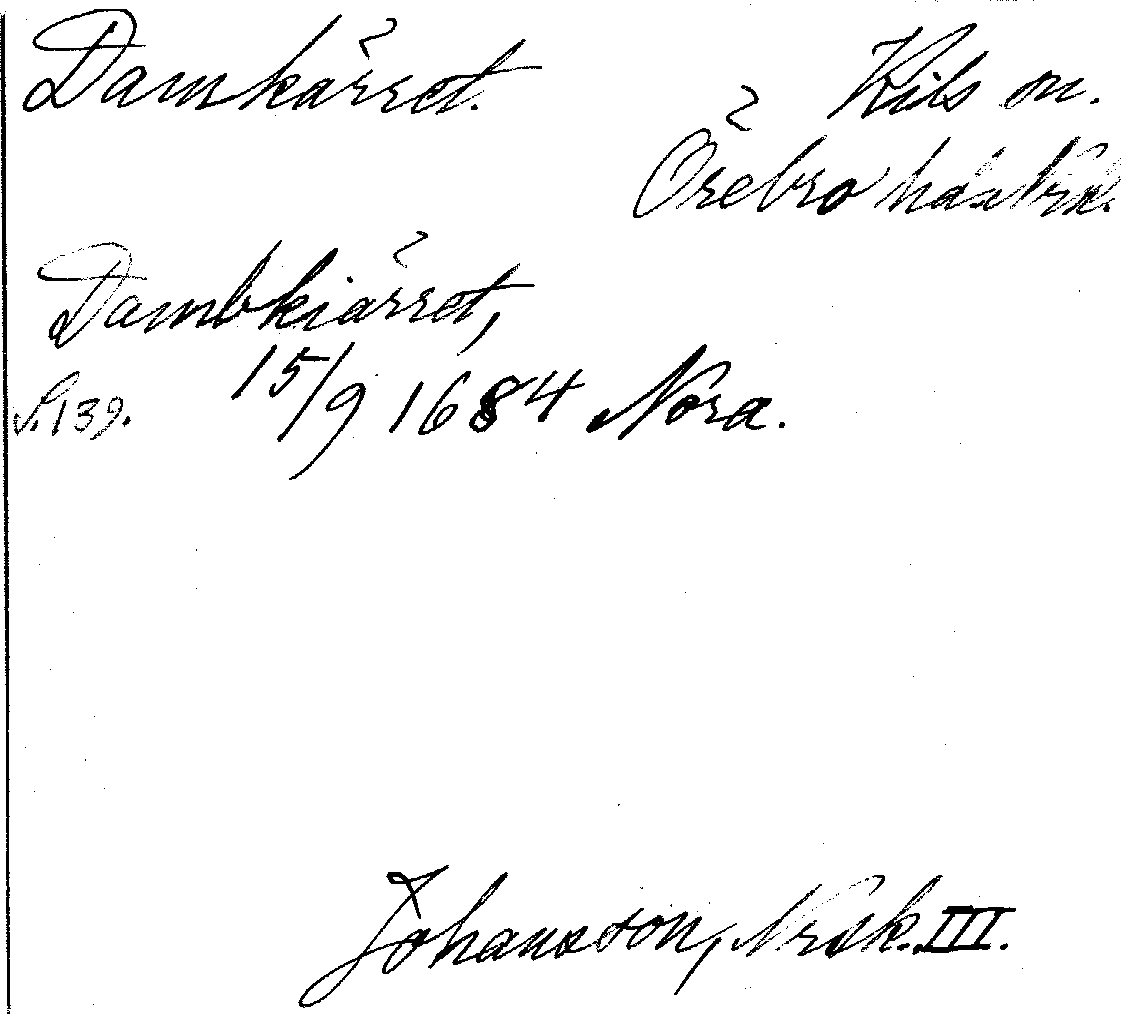 Damkärret.
Kils sn.
Örebro härad
Dambkiärret,
15/9 1684 Nora.
S. 139.
Johansson, Nrsk. III.